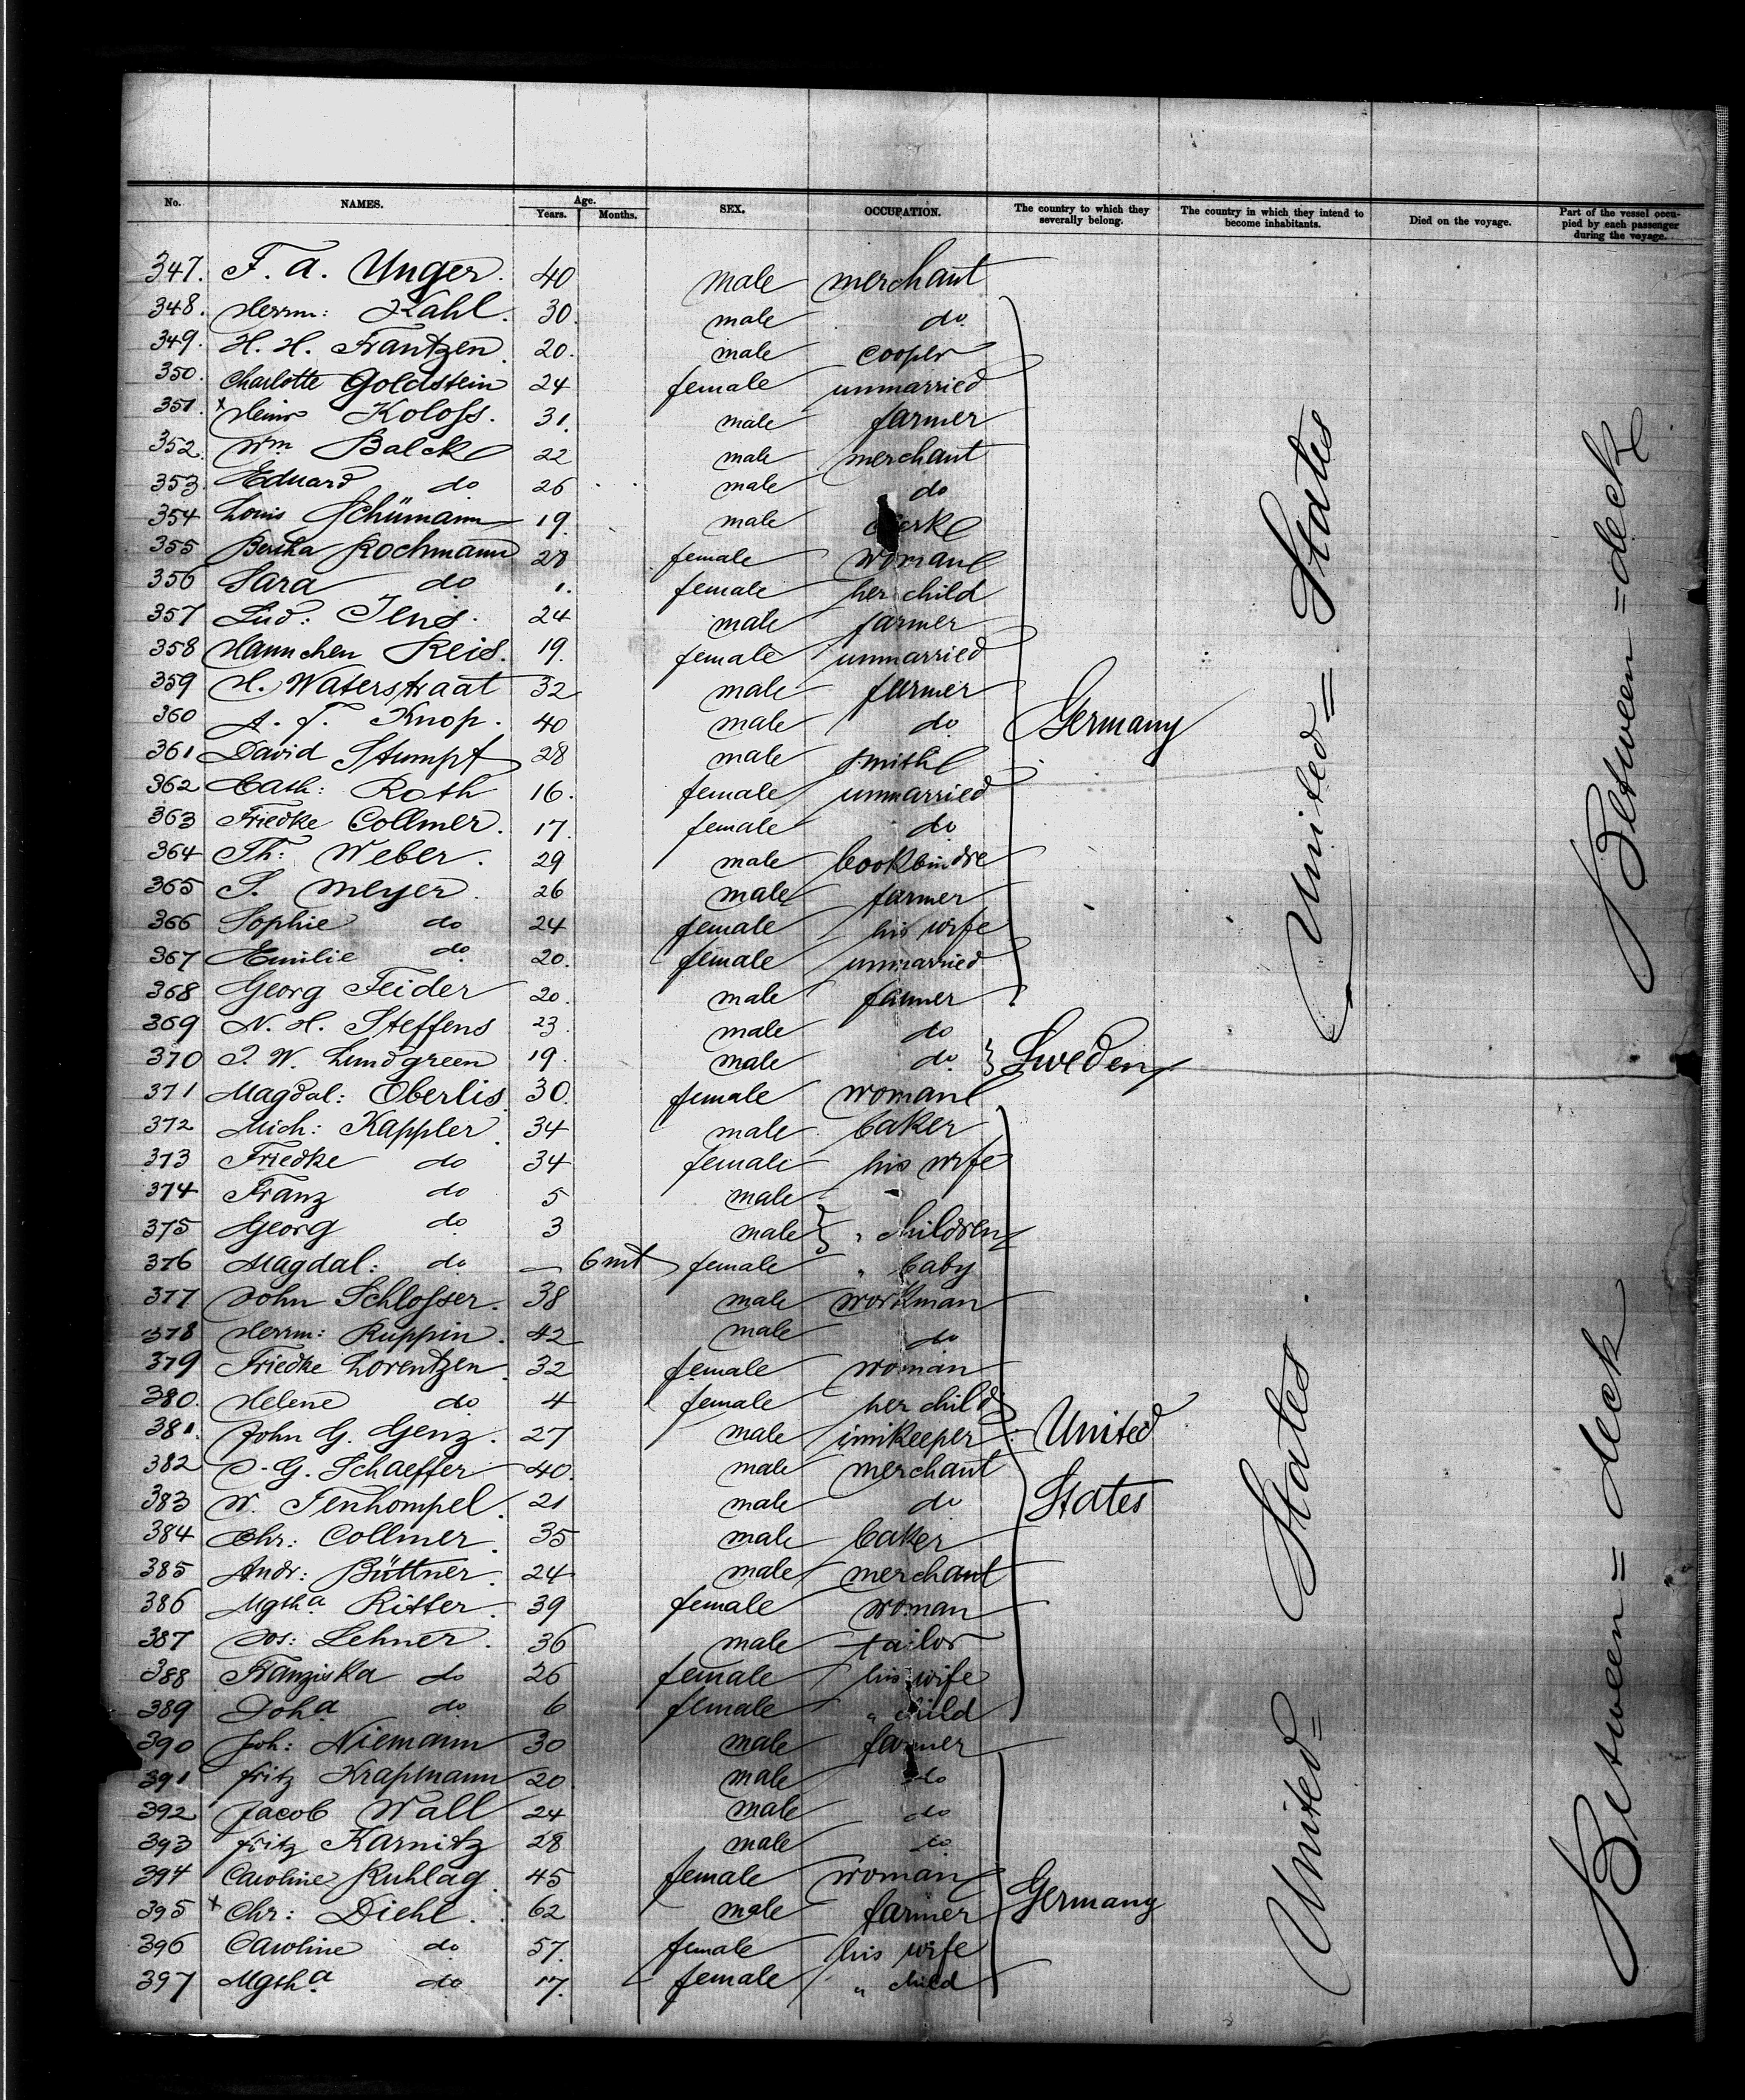 No. NAMES. Age. Years. Months. SEX. OCCUPATION. The country to which they severally belong. The country in which they intend to become inhabitants. Died on the voyage. Part of the vessel occupied by each passenger during the voyage.
347. F. A. Unger. 40 male merchant
348. Herrm: Kahl. 30. male do.
349. H. H. Frantzen. 20. male cooper
350. Charlotte Goldstein 24 female unmarried
351. x Heinr Koloss. 31. male farmer
352. Wm Balck 22 male merchant
353. Eduard do 26 male do
354 Louis Schümann 19. male clerk
355 Bertha Kochmann 28 female woman
356 Sara do 1. female her child
357 Lud: Jens. 24 male farmer
358 Hannchen Reis. 19. female unmarried
359 H. Waterstraat 32 male farmer
360 A. F. Knop. 40 male do. Germany United= States Between=deck
361 David Stumpf 28 male smith
362 Cath: Roth 16. female unmarried
363 Friedke Collmer. 17. female do
364 Th: Weber. 29 male bookbindre
365 S. Meyer. 26 male farmer
366 Sophie do 24 female his wife
367 Emilie do. 20. female unmarried
368 Georg Feider 20. male farmer
369 N. H. Steffens 23. male do
370 J. W. Lundgreen 19. male do. } Sweden
371 Magdal: Oberlis 30. female woman
372 Mich: Kappler. 34 male baker
373 Friedke do 34 female his wife
374 Franz do 5 male
375 Georg do. 3 male } " children
376 Magdal: do. — 6 mt female " baby
377 John Schlosser. 38 male workman
378 Herrm: Ruppin. 42 male do
379 Friedke Lorentzen. 32 female woman
380. Helene do 4 female her child
381. John G. Genz. 27 male innkeeper United
382 J. G. Schaeffer 40. male merchant
383 W. Tenhompel. 21 male do States United= States Between= deck
384 Chr: Collmer. 35 male baker
385 Andr: Büttner. 24 male merchant
386 Mgtha Ritter. 39 female woman
387 Jos: Lehner. 36 male tailor
388 Franziska do 26 female his wife
389 Joha do. 6 female " child
390 Joh: Niemann 30 male farmer
391 Fritz Krapmann 20 male do
392 Jacob Wall 24 male do
393 Fritz Karnitz 28 male do
394 Caroline Ruhlag. 45 female woman
395 x Chr: Diehl. 62 male farmer Germany
396 Caroline do 57. female his wife
397 Mgtha do 17. female " child